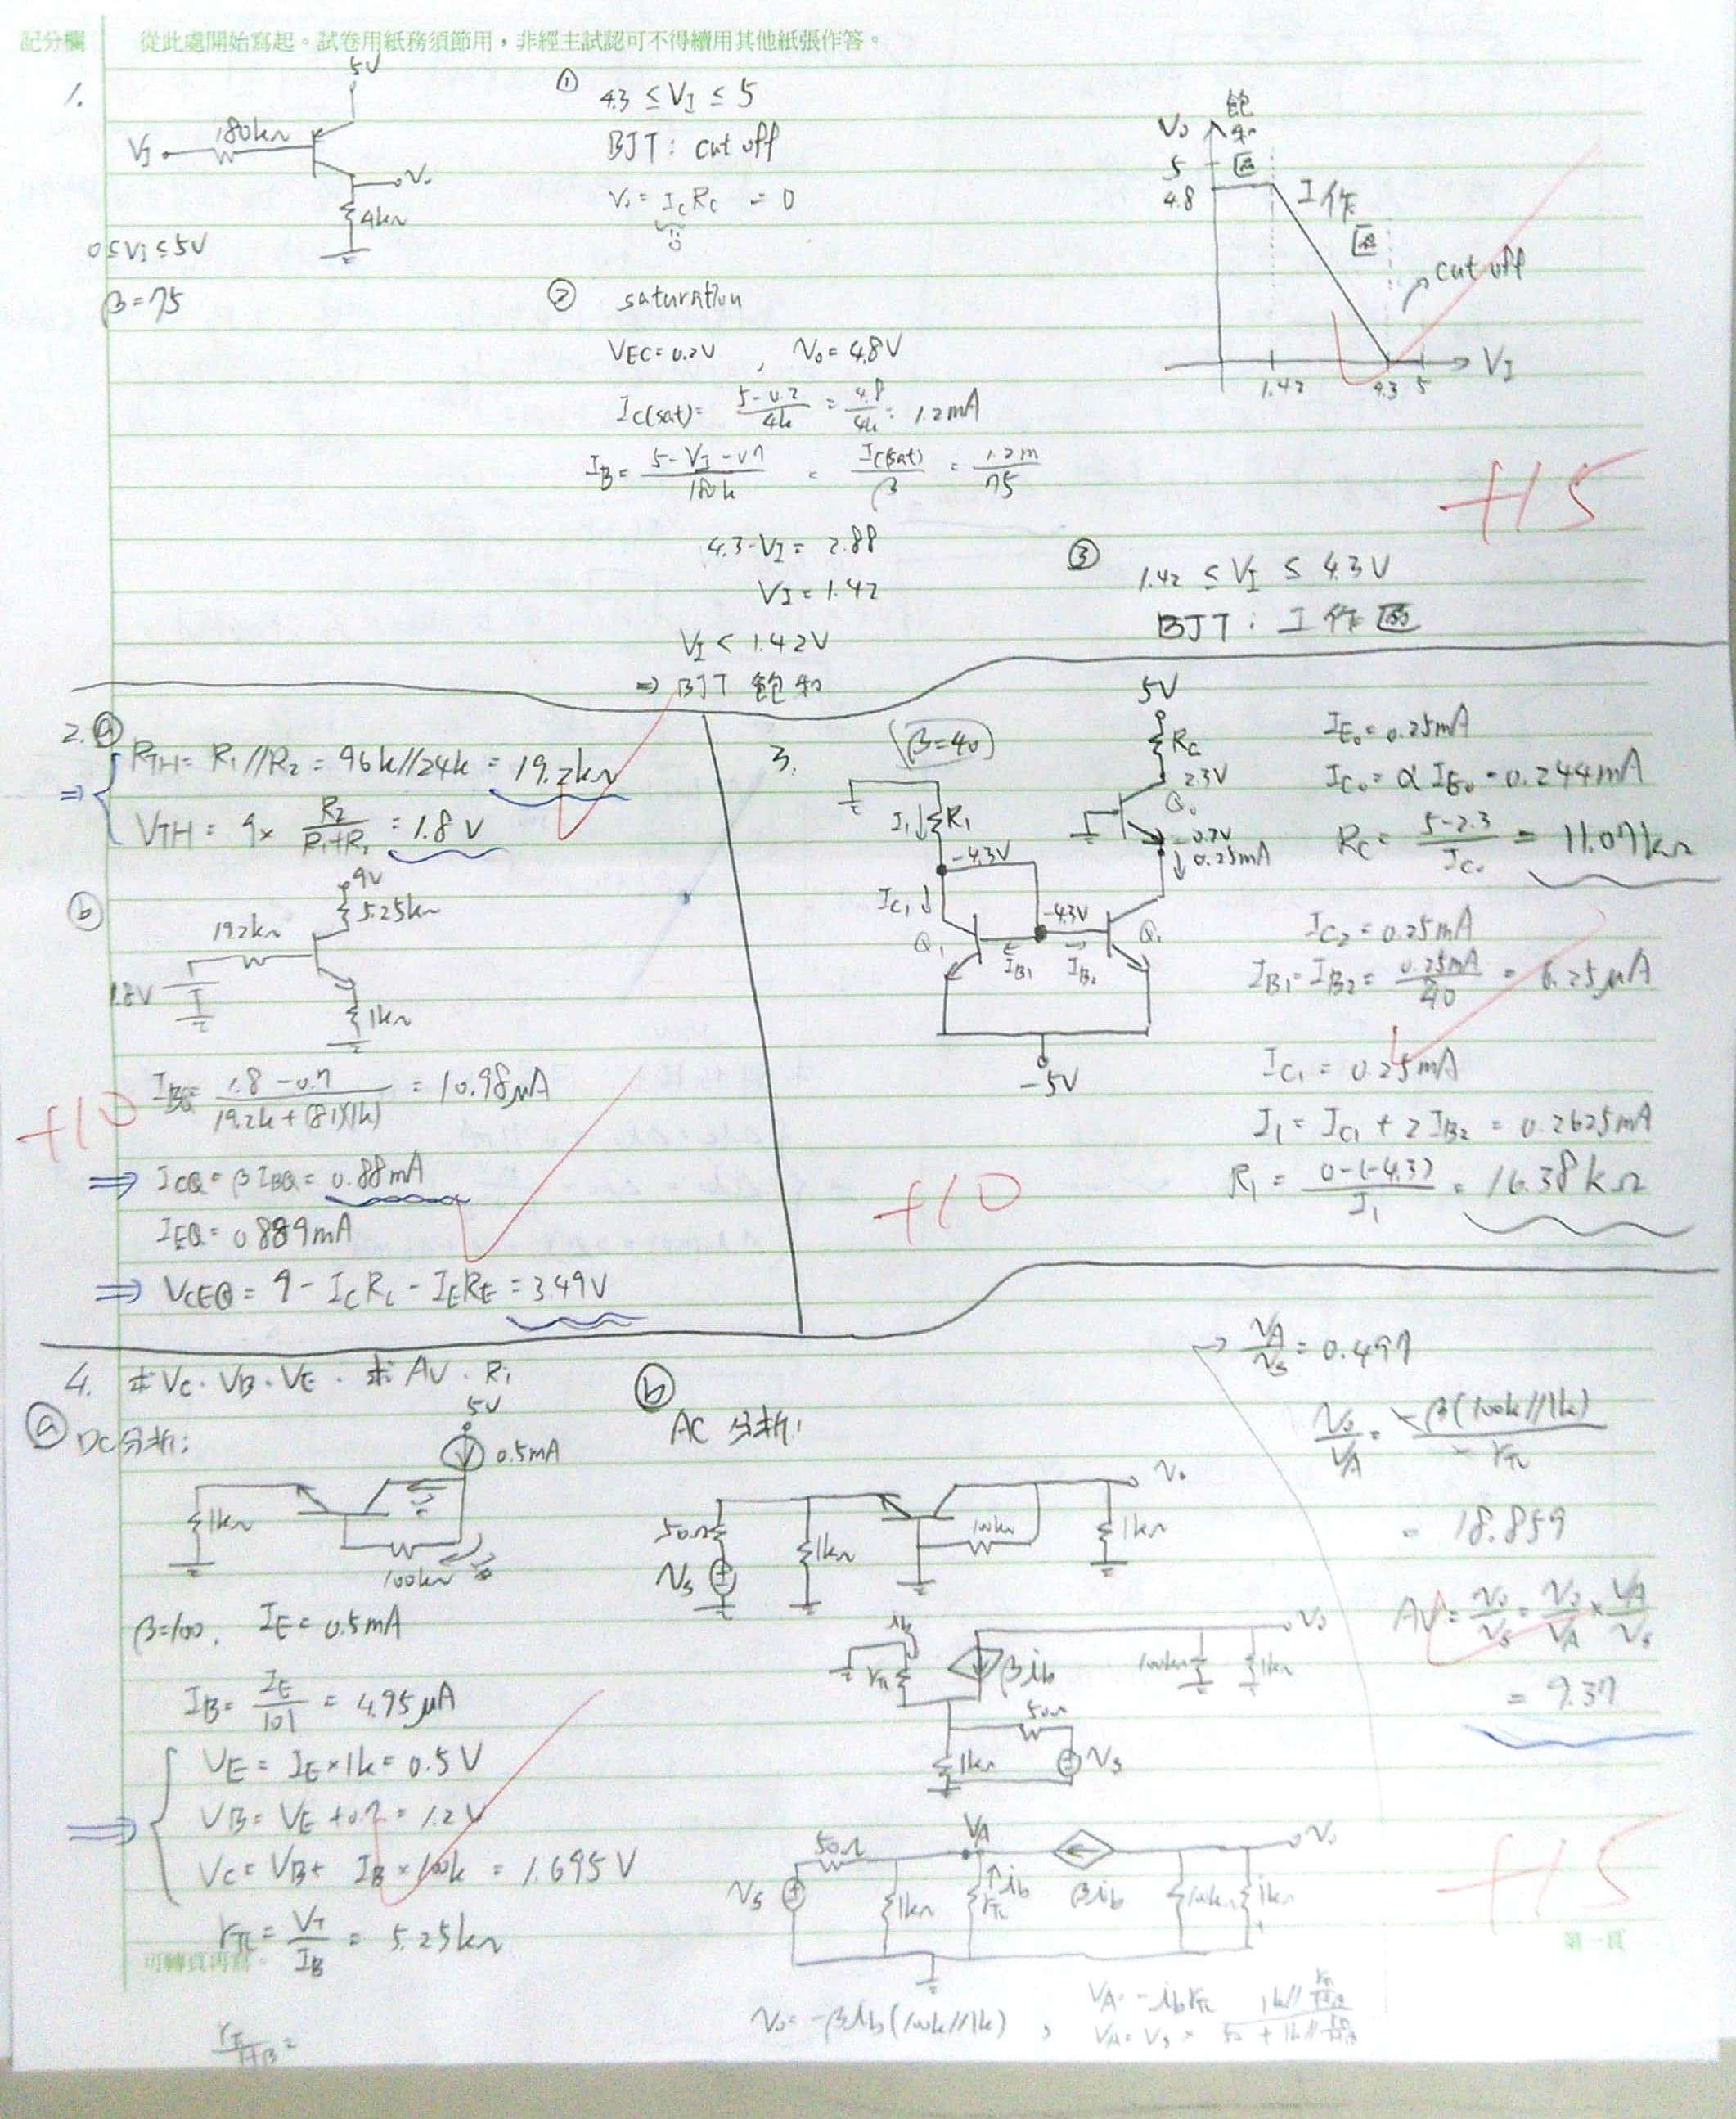 記分欄
從此處開始寫起。試卷用紙務須節用,非經主試認可不得續用其他紙張作答。
1.
5V
VI
180kΩ
Vo
4kΩ
0≤VI≤5V
β=75
① 4.3 ≤ VI ≤ 5
BJT: cut off
Vo = IC RC = 0
② saturation
VEC = 0.2V , Vo = 4.8V
IC(sat) = (5-0.2)/4k = 4.8/4k = 1.2mA
IB = (5-VI-0.7)/180k = IC(sat)/β = 1.2m/75
4.3-VI = 2.88
VI = 1.42
VI < 1.42V
⇒ BJT 飽和
Vo
飽和區
5
4.8
工作區
cut off
1.42
4.3
5
VI
+15
③ 1.42 ≤ VI ≤ 4.3V
BJT: 工作區
2. ⓐ
⇒ RTH = R1//R2 = 96k//24k = 19.2kΩ
VTH = 9× R2/(R1+R2) = 1.8V
ⓑ
9V
5.25kΩ
19.2kΩ
1.8V
1kΩ
+10
IBQ = (1.8-0.7)/(19.2k+(81)(1k)) = 10.98μA
⇒ ICQ = βIBQ = 0.88mA
IEQ = 0.889mA
⇒ VCEQ = 9 - ICRC - IERE = 3.49V
3.
(β=40)
5V
RC
2.3V
Qo
-0.7V
0.25mA
I1
R1
-4.3V
IC1
-4.3V
Q1
IB1
IB2
-5V
IEo = 0.25mA
ICo = αIEo = 0.244mA
RC = (5-2.3)/ICo = 11.07kΩ
IC2 = 0.25mA
IB1 = IB2 = 0.25mA/40 = 6.25μA
IC1 = 0.25mA
I1 = IC1 + 2IB2 = 0.2625mA
R1 = (0-(-4.3))/I1 = 16.38kΩ
+10
4. 求VC.VB.VE. 求AV.Ri
ⓐ DC分析:
5V
0.5mA
1kΩ
100kΩ
β=100, IE = 0.5mA
IB = IE/101 = 4.95μA
⇒ VE = IE×1k = 0.5V
VB = VE+0.7 = 1.2V
VC = VB + IB×100k = 1.695V
rπ = VT/IB = 5.25kΩ
ⓑ AC分析:
Vo
50Ω
Vs
1kΩ
100kΩ
1kΩ
ib
rπ
βib
Vo
100kΩ
1kΩ
50Ω
1kΩ
Vs
VA
50Ω
Vs
1kΩ
rπ
ib
βib
Vo
100kΩ
1kΩ
Vo = -βib(100k//1k) ,
VA = -ib rπ
→ VA/Vs = 0.497
Vo/VA = -β(100k//1k)/-rπ
= 18.859
AV = Vo/Vs = Vo/VA × VA/Vs
= 9.37
+15
可轉頁再寫。
第一頁